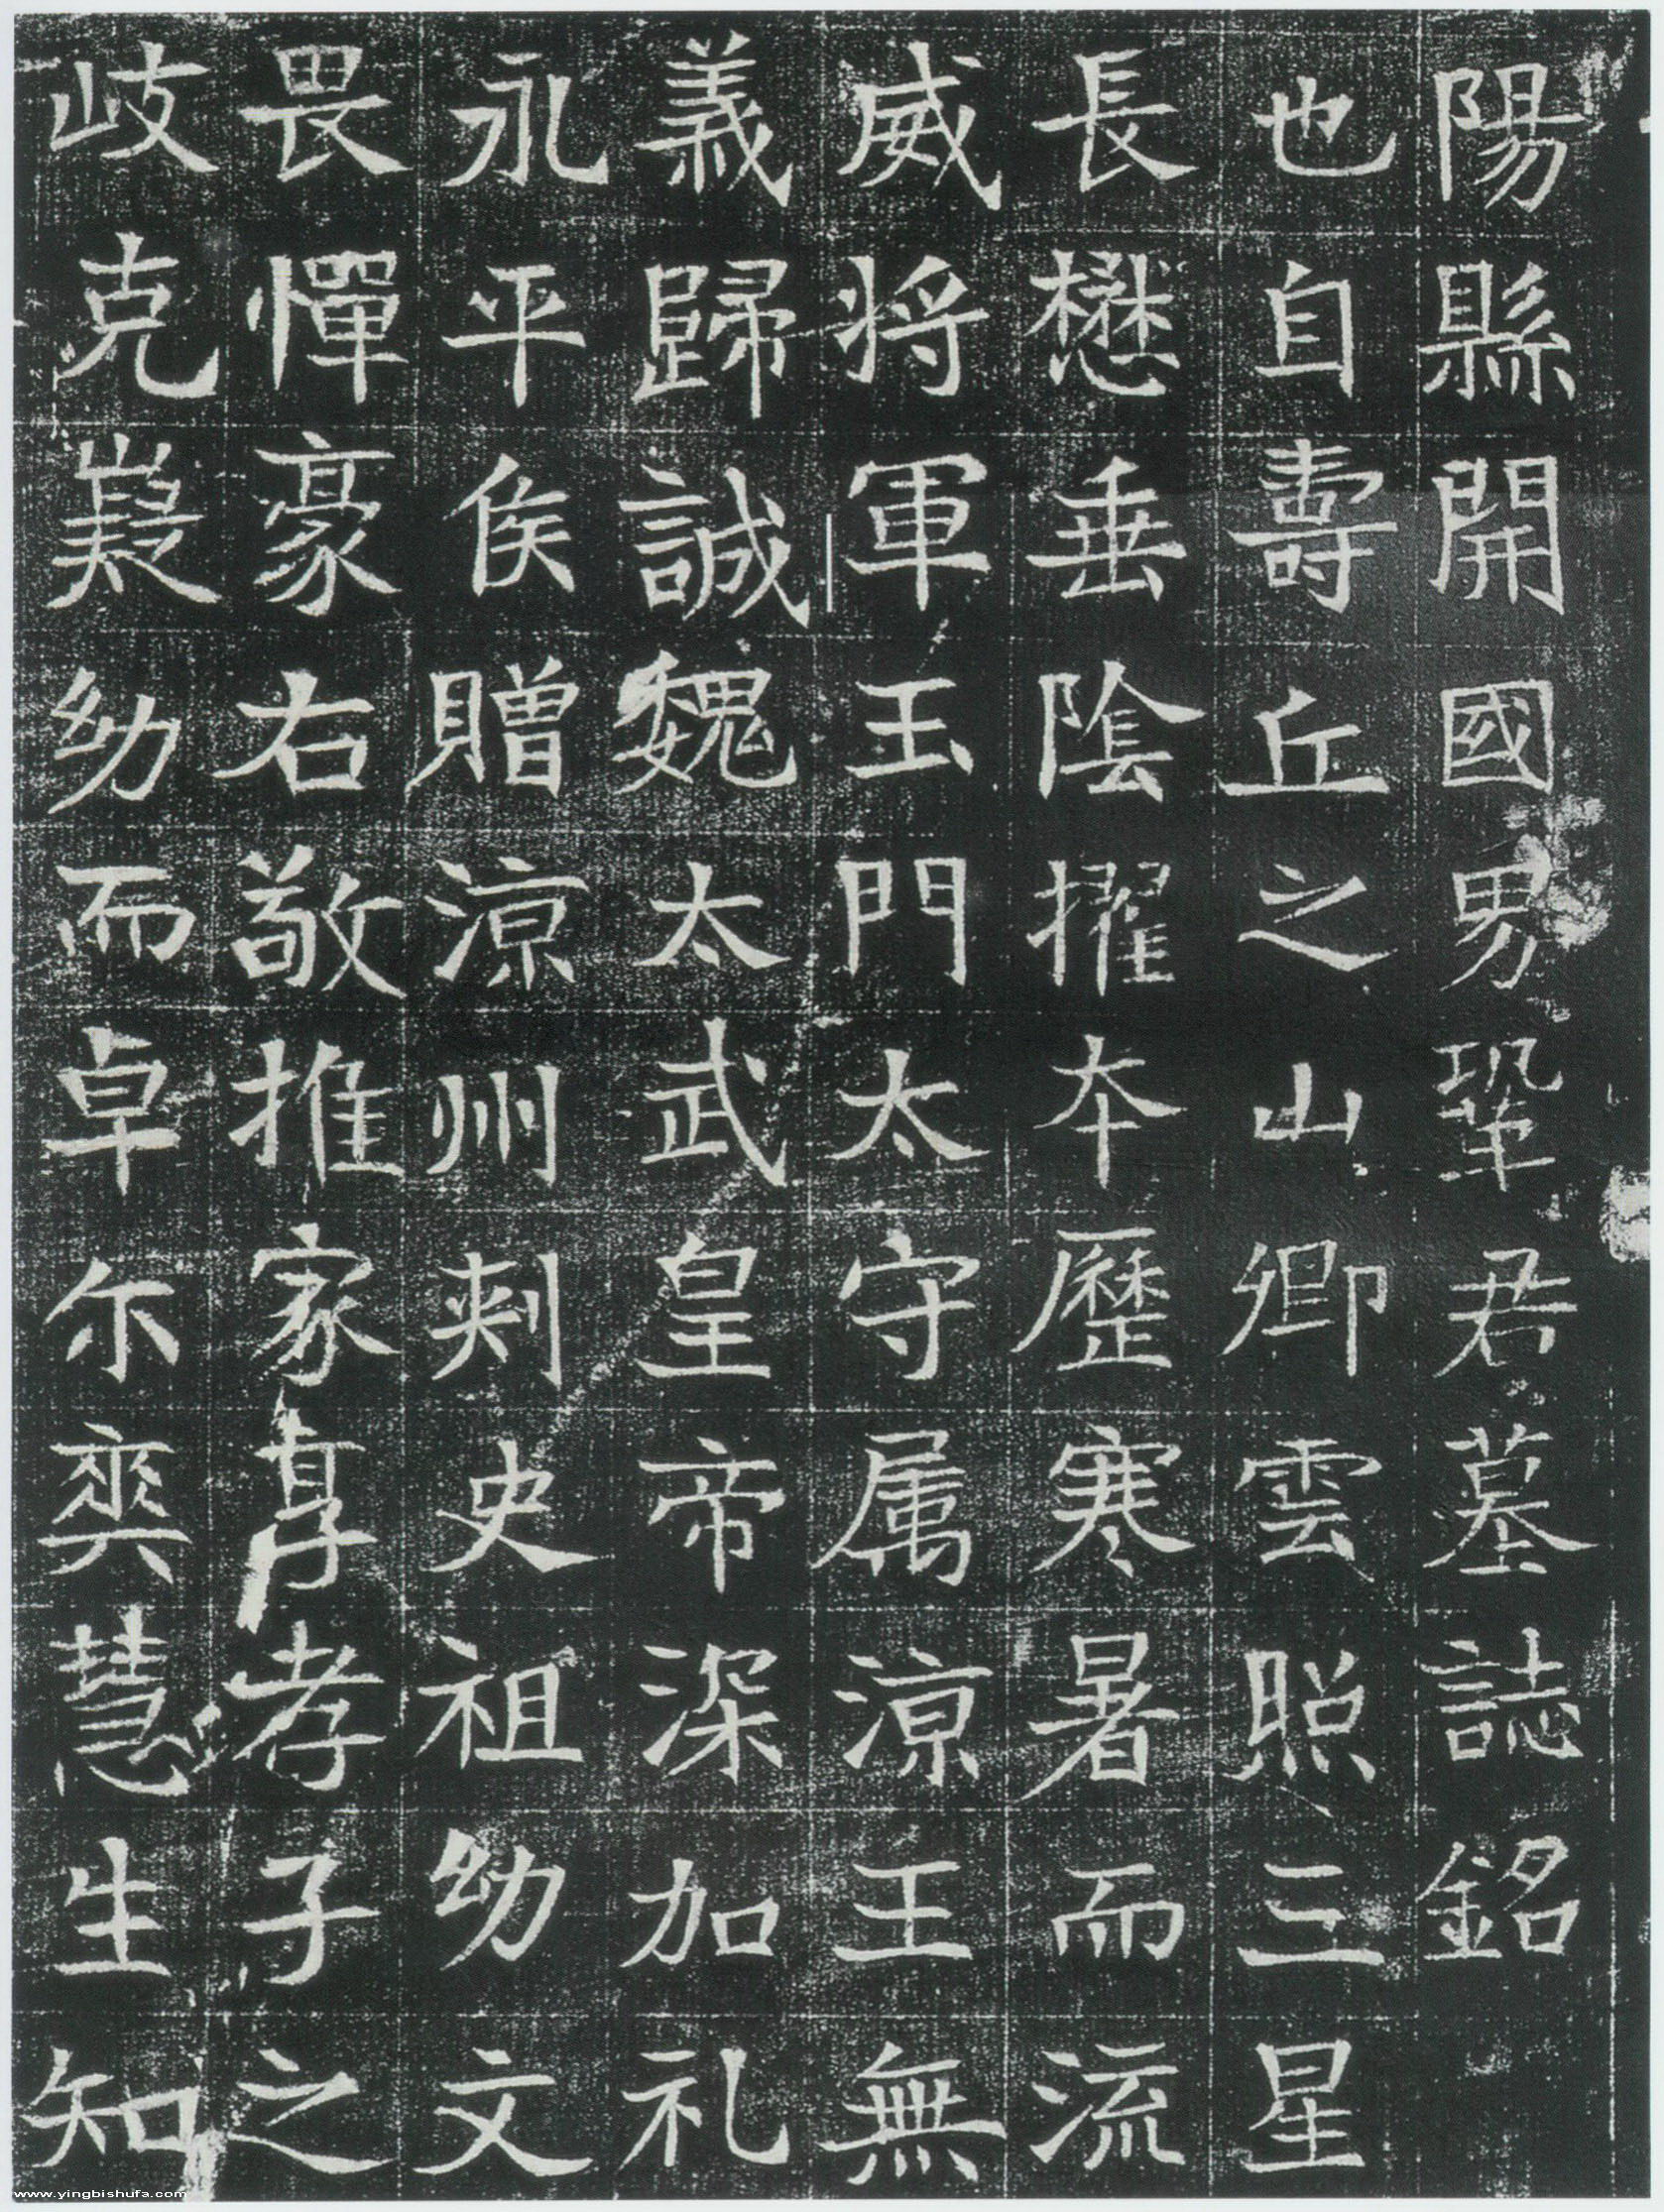 陽縣開國男鞏君墓誌銘
也自壽丘之山卿雲照三星
長懋垂陰擢本歷寒暑而流
威将軍玉門太守属涼王無
義歸誠魏太武皇帝深加礼
永平侯贈涼州刺史祖幼文
畏憚豪右敬推家享孝子之
岐克嶷幼而卓尓奕慧生知
www.yingbishufa.com